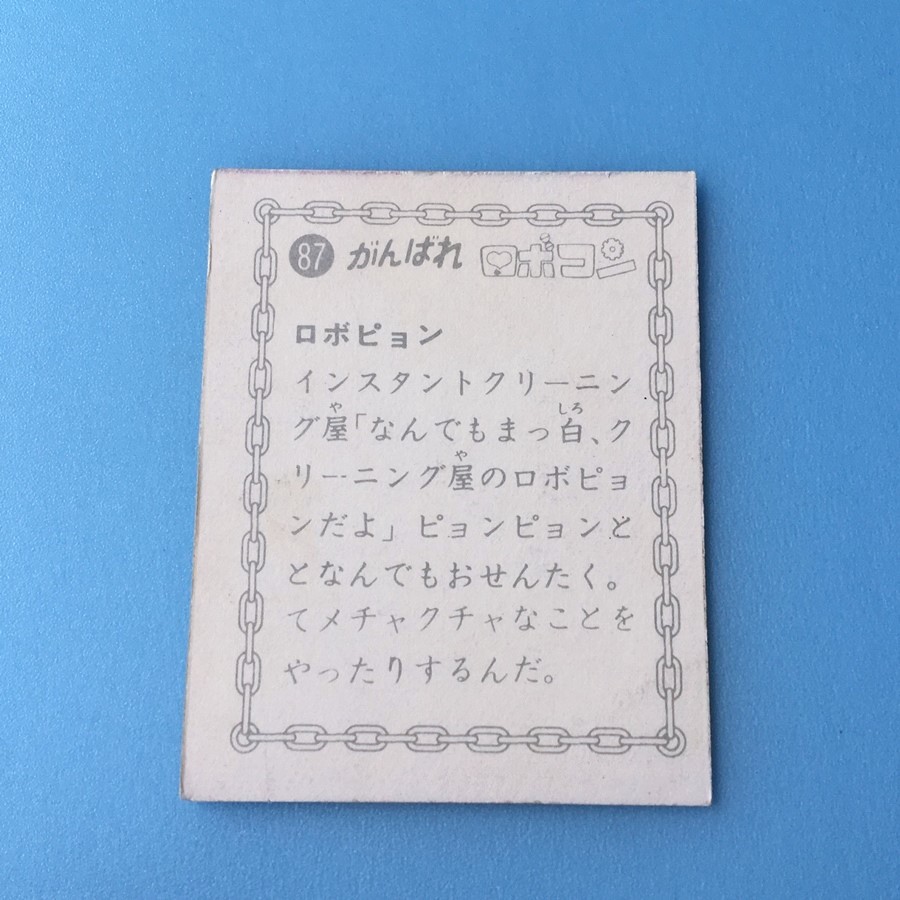 87 がんばれ ロボコン
ロボピョン
インスタントクリーニン
グ屋「なんでもまっ白、ク
リーニング屋のロボピョ
ンだよ」ピョンピョンと
となんでもおせんたく。
てメチャクチャなことを
やったりするんだ。